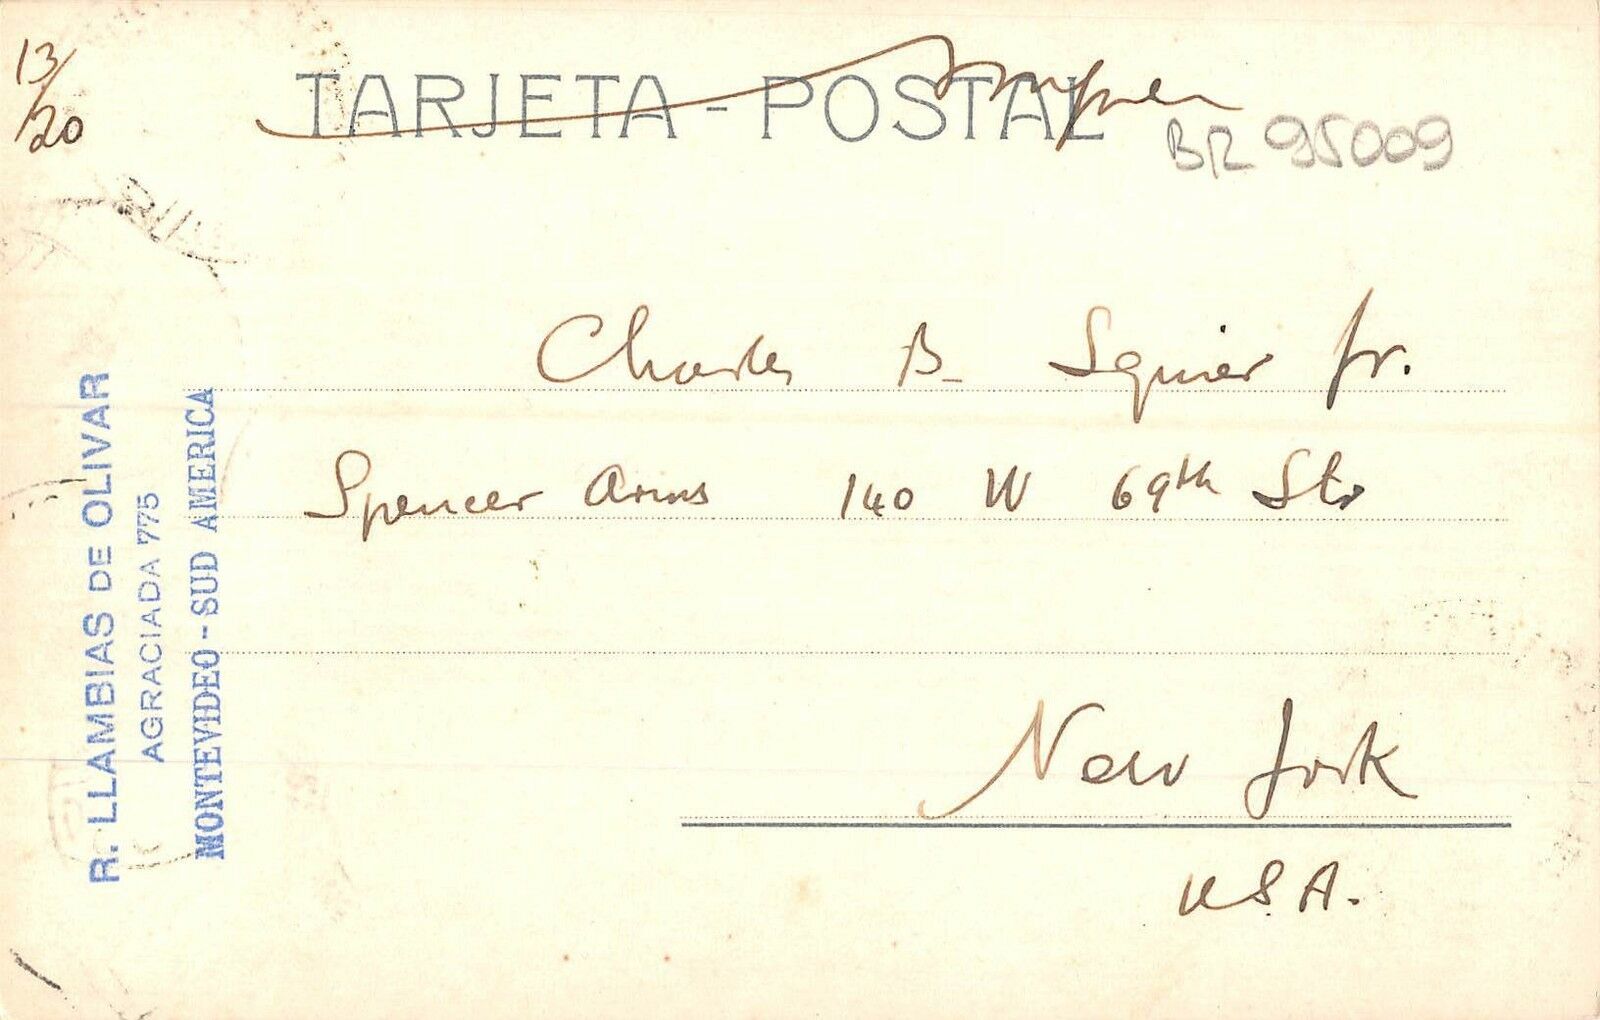 13/20
TARJETA - POSTAL
BR 95009
Charles B. Squier Jr.
Spencer Arms 140 W 69th Str
New York
U.S.A.
R. LLAMBIAS DE OLIVAR
AGRACIADA 775
MONTEVIDEO - SUD AMERICA